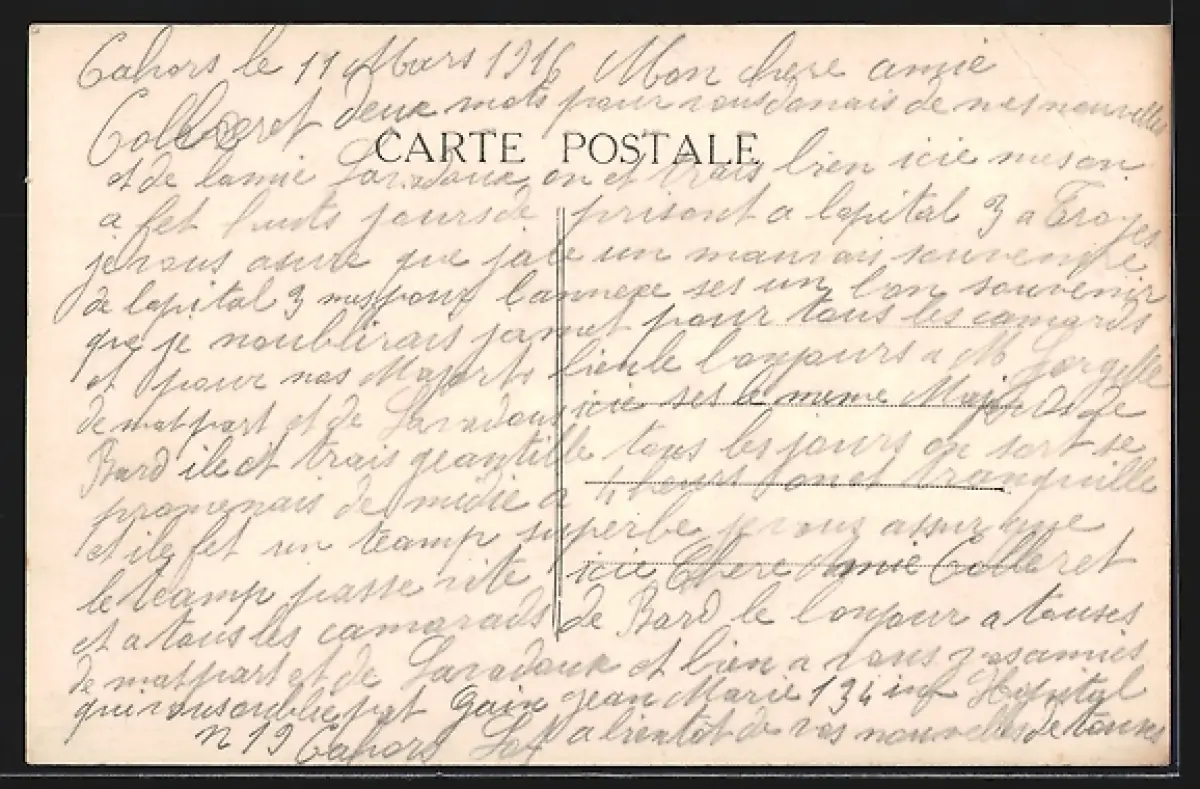 Cahors le 11 Mars 1916 Mon chere amie
Colleret deux mots pour vous donais de nes nouvelles
CARTE POSTALE
et de lamie Laradoux on et trais bien icie mes on
a fet huits jours de prisont a lopital 3 a Troyes
je vous asure que jaie un mauvais souvenire
de lopital 3 mes pour lannexe ses un bon souvenir
que je noublirais jamet pour tous les camards
et pour nos Majorts bien le bonjours a M
de matpart et de Laradoux icie ses le meme Majords de
Bard il et trais geantille tous les jours on sort se
promenais de midie a 4 heurs on et tranquille
et il fet un teamp superbe je vous assur que
le teamp passe vite icie Chere Amie Colleret
et a tous les camarads de Bard le bonjour a touses
de matpart et de Laradoux et bien a vous vos amies
qui vous oublie pat Gain Jean Marie 134 inf Hopital
n 19 Cahors Lot a bientot de vos nouvelles de toutes